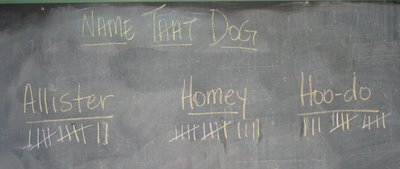 NAME THAT DOG
Allister Homey Hoo-do